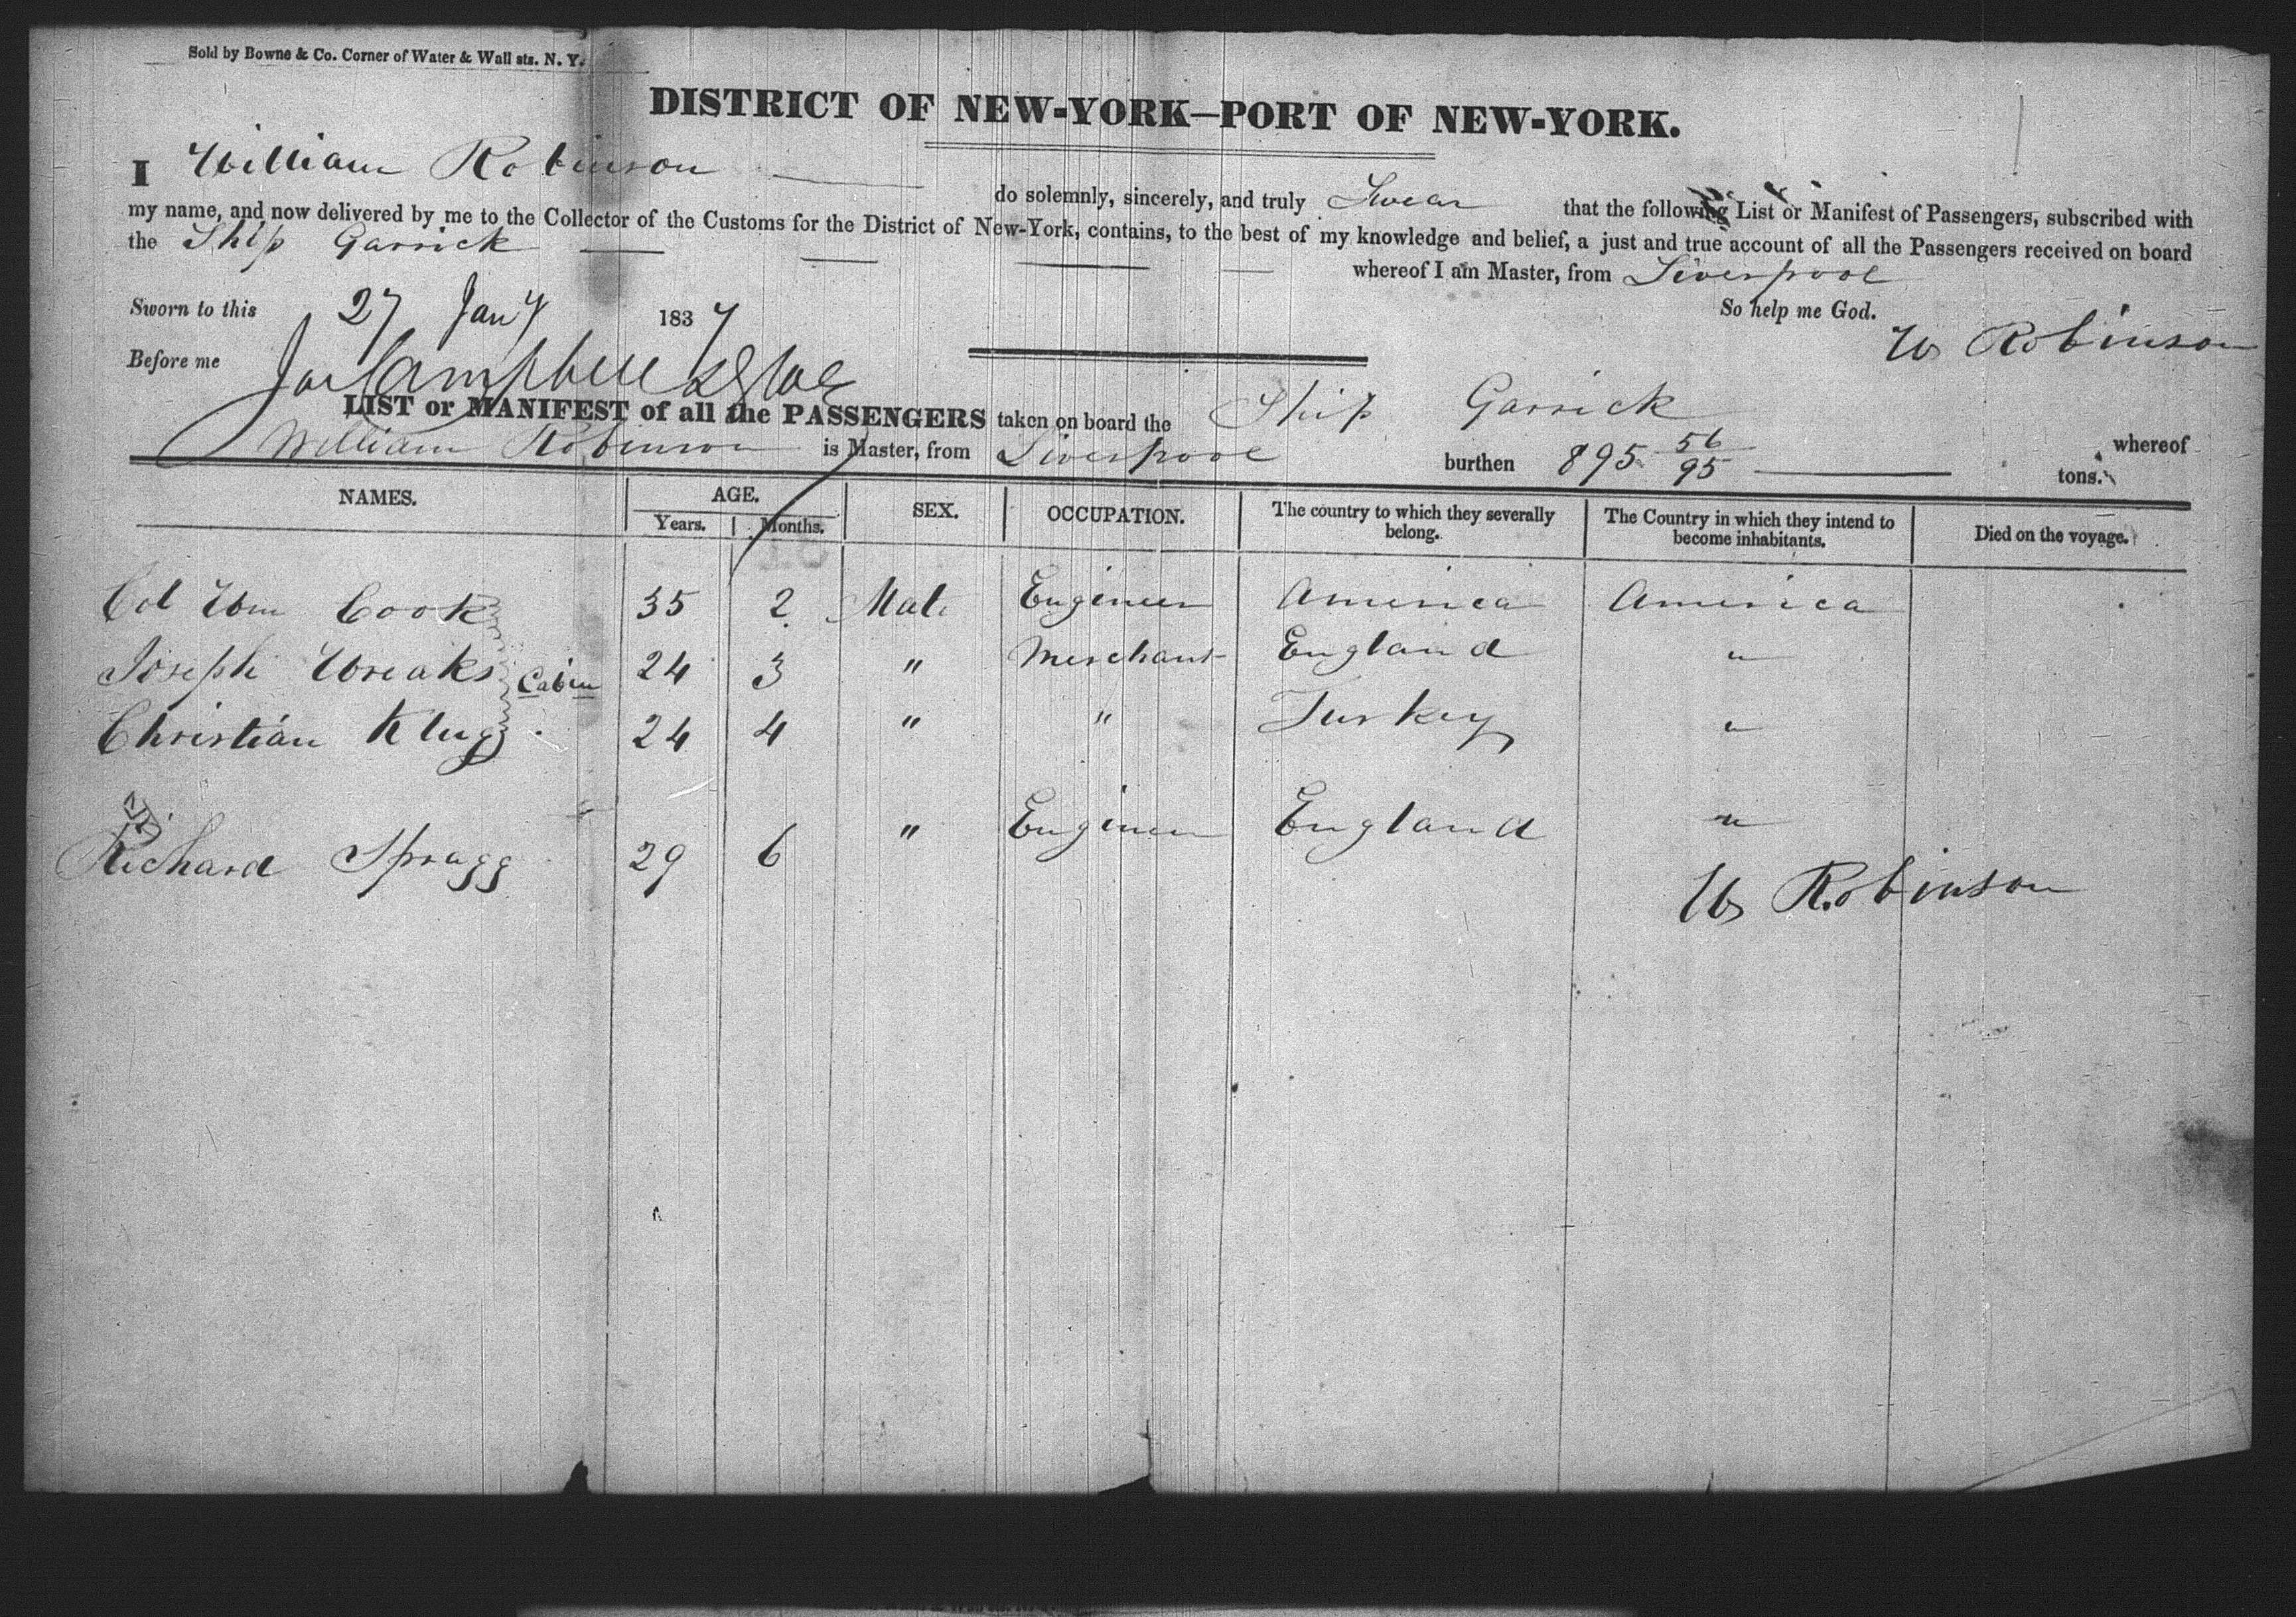 Sold by Bowne & Co. Corner of Water & Wall sts. N. Y.
DISTRICT OF NEW-YORK—PORT OF NEW-YORK.
I William Robinson do solemnly, sincerely, and truly Swear that the following List or Manifest of Passengers, subscribed with
my name, and now delivered by me to the Collector of the Customs for the District of New-York, contains, to the best of my knowledge and belief, a just and true account of all the Passengers received on board
the Ship Garrick whereof I am Master, from Liverpool
Sworn to this 27 Jany 1837 So help me God.
Before me W Robinson
LIST or MANIFEST of all the PASSENGERS taken on board the Ship Garrick whereof
William Robinson is Master, from Liverpool burthen 895 56/95 tons.
NAMES. AGE. SEX. OCCUPATION. The country to which they severally belong. The Country in which they intend to become inhabitants. Died on the voyage.
Years. Months.
Col Wm Cook 35 2 Male Engineer America America
Joseph Wreaks Cabin 24 3 " Merchant England "
Christian Klug 24 4 " " Turkey "
Richard Spragg 29 6 " Engineer England "
W Robinson